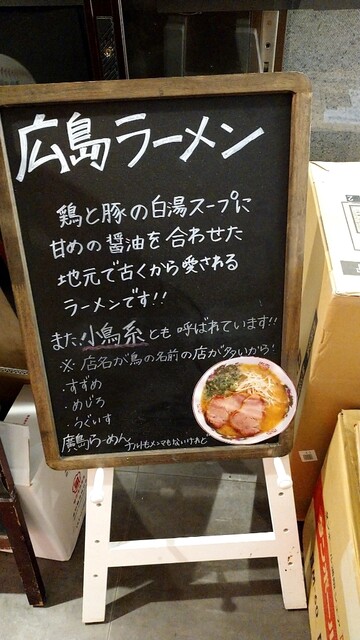 広島ラーメン
鶏と豚の白湯スープに
甘めの醤油を合わせた
地元で古くから愛される
ラーメンです!!
また小鳥系とも呼ばれています!!
※店名が鳥の名前の店が多いから!
・すずめ
・めじろ
・うぐいす
廣島らーめん ナルトもメンマもないけれど